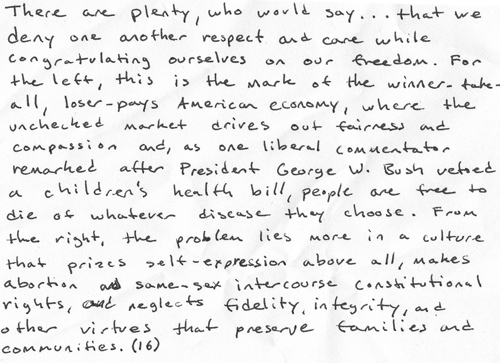 There are plenty, who would say... that we
deny one another respect and care while
congratulating ourselves on our freedom. For
the left, this is the mark of the winner-take-
all, loser-pays American economy, where the
unchecked market drives out fairness and
compassion and, as one liberal commentator
remarked after President George W. Bush vetoed
a children's health bill, people are free to
die of whatever disease they choose. From
the right, the problem lies more in a culture
that prizes self-expression above all, makes
abortion and same-sex intercourse constitutional
rights, and neglects fidelity, integrity, and
other virtues that preserve families and
communities. (16)